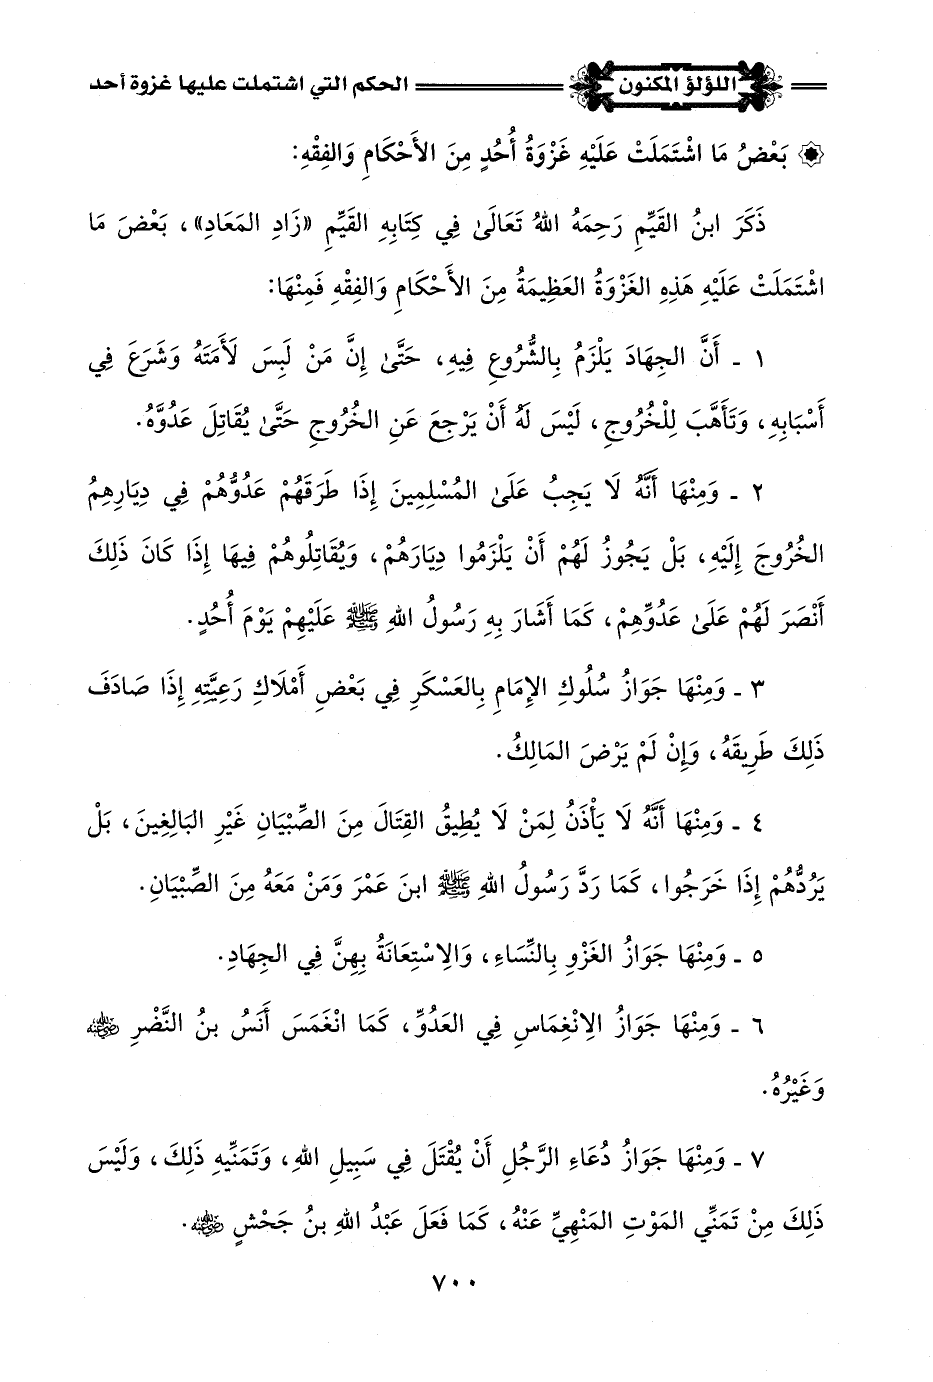 اللؤلؤ المكنون الحكم التي اشتملت عليها غزوة أحد
بَعْضُ مَا اشْتَمَلَتْ عَلَيْهِ غَزْوَةُ أُحُدٍ مِنَ الأَحْكَامِ وَالفِقْهِ:
ذَكَرَ ابنُ القَيِّمِ رَحِمَهُ اللهُ تَعَالَىٰ فِي كِتَابِهِ القَيِّمِ «زَادِ المَعَادِ»، بَعْضَ مَا
اشْتَمَلَتْ عَلَيْهِ هَذِهِ الغَزْوَةُ العَظِيمَةُ مِنَ الأَحْكَامِ وَالفِقْهِ فَمِنْهَا:
١ - أَنَّ الجِهَادَ يَلْزَمُ بِالشُّرُوعِ فِيهِ، حَتَّىٰ إِنَّ مَنْ لَبِسَ لَأْمَتَهُ وَشَرَعَ فِي
أَسْبَابِهِ، وَتَأَهَّبَ لِلْخُرُوجِ، لَيْسَ لَهُ أَنْ يَرْجِعَ عَنِ الخُرُوجِ حَتَّىٰ يُقَاتِلَ عَدُوَّهُ.
٢ - وَمِنْهَا أَنَّهُ لَا يَجِبُ عَلَىٰ المُسْلِمِينَ إِذَا طَرَقَهُمْ عَدُوُّهُمْ فِي دِيَارِهِمُ
الخُرُوجَ إِلَيْهِ، بَلْ يَجُوزُ لَهُمْ أَنْ يَلْزَمُوا دِيَارَهُمْ، وَيُقَاتِلُوهُمْ فِيهَا إِذَا كَانَ ذَلِكَ
أَنْصَرَ لَهُمْ عَلَىٰ عَدُوِّهِمْ، كَمَا أَشَارَ بِهِ رَسُولُ اللهِ ﷺ عَلَيْهِمْ يَوْمَ أُحُدٍ.
٣ - وَمِنْهَا جَوَازُ سُلُوكِ الإِمَامِ بِالعَسْكَرِ فِي بَعْضِ أَمْلَاكِ رَعِيَّتِهِ إِذَا صَادَفَ
ذَلِكَ طَرِيقَهُ، وَإِنْ لَمْ يَرْضَ المَالِكُ.
٤ - وَمِنْهَا أَنَّهُ لَا يَأْذَنُ لِمَنْ لَا يُطِيقُ القِتَالَ مِنَ الصِّبْيَانِ غَيْرِ البَالِغِينَ، بَلْ
يَرُدُّهُمْ إِذَا خَرَجُوا، كَمَا رَدَّ رَسُولُ اللهِ ﷺ ابنَ عُمَرَ وَمَنْ مَعَهُ مِنَ الصِّبْيَانِ.
٥ - وَمِنْهَا جَوَازُ الغَزْوِ بِالنِّسَاءِ، وَالِاسْتِعَانَةُ بِهِنَّ فِي الجِهَادِ.
٦ - وَمِنْهَا جَوَازُ الِانْغِمَاسِ فِي العَدُوِّ، كَمَا انْغَمَسَ أَنَسُ بنُ النَّضْرِ رضي الله عنه
وَغَيْرُهُ.
٧ - وَمِنْهَا جَوَازُ دُعَاءِ الرَّجُلِ أَنْ يُقْتَلَ فِي سَبِيلِ اللهِ، وَتَمَنِّيهِ ذَلِكَ، وَلَيْسَ
ذَلِكَ مِنْ تَمَنِّي المَوْتِ المَنْهِيِّ عَنْهُ، كَمَا فَعَلَ عَبْدُ اللهِ بنُ جَحْشٍ رضي الله عنه.
٧٠٠